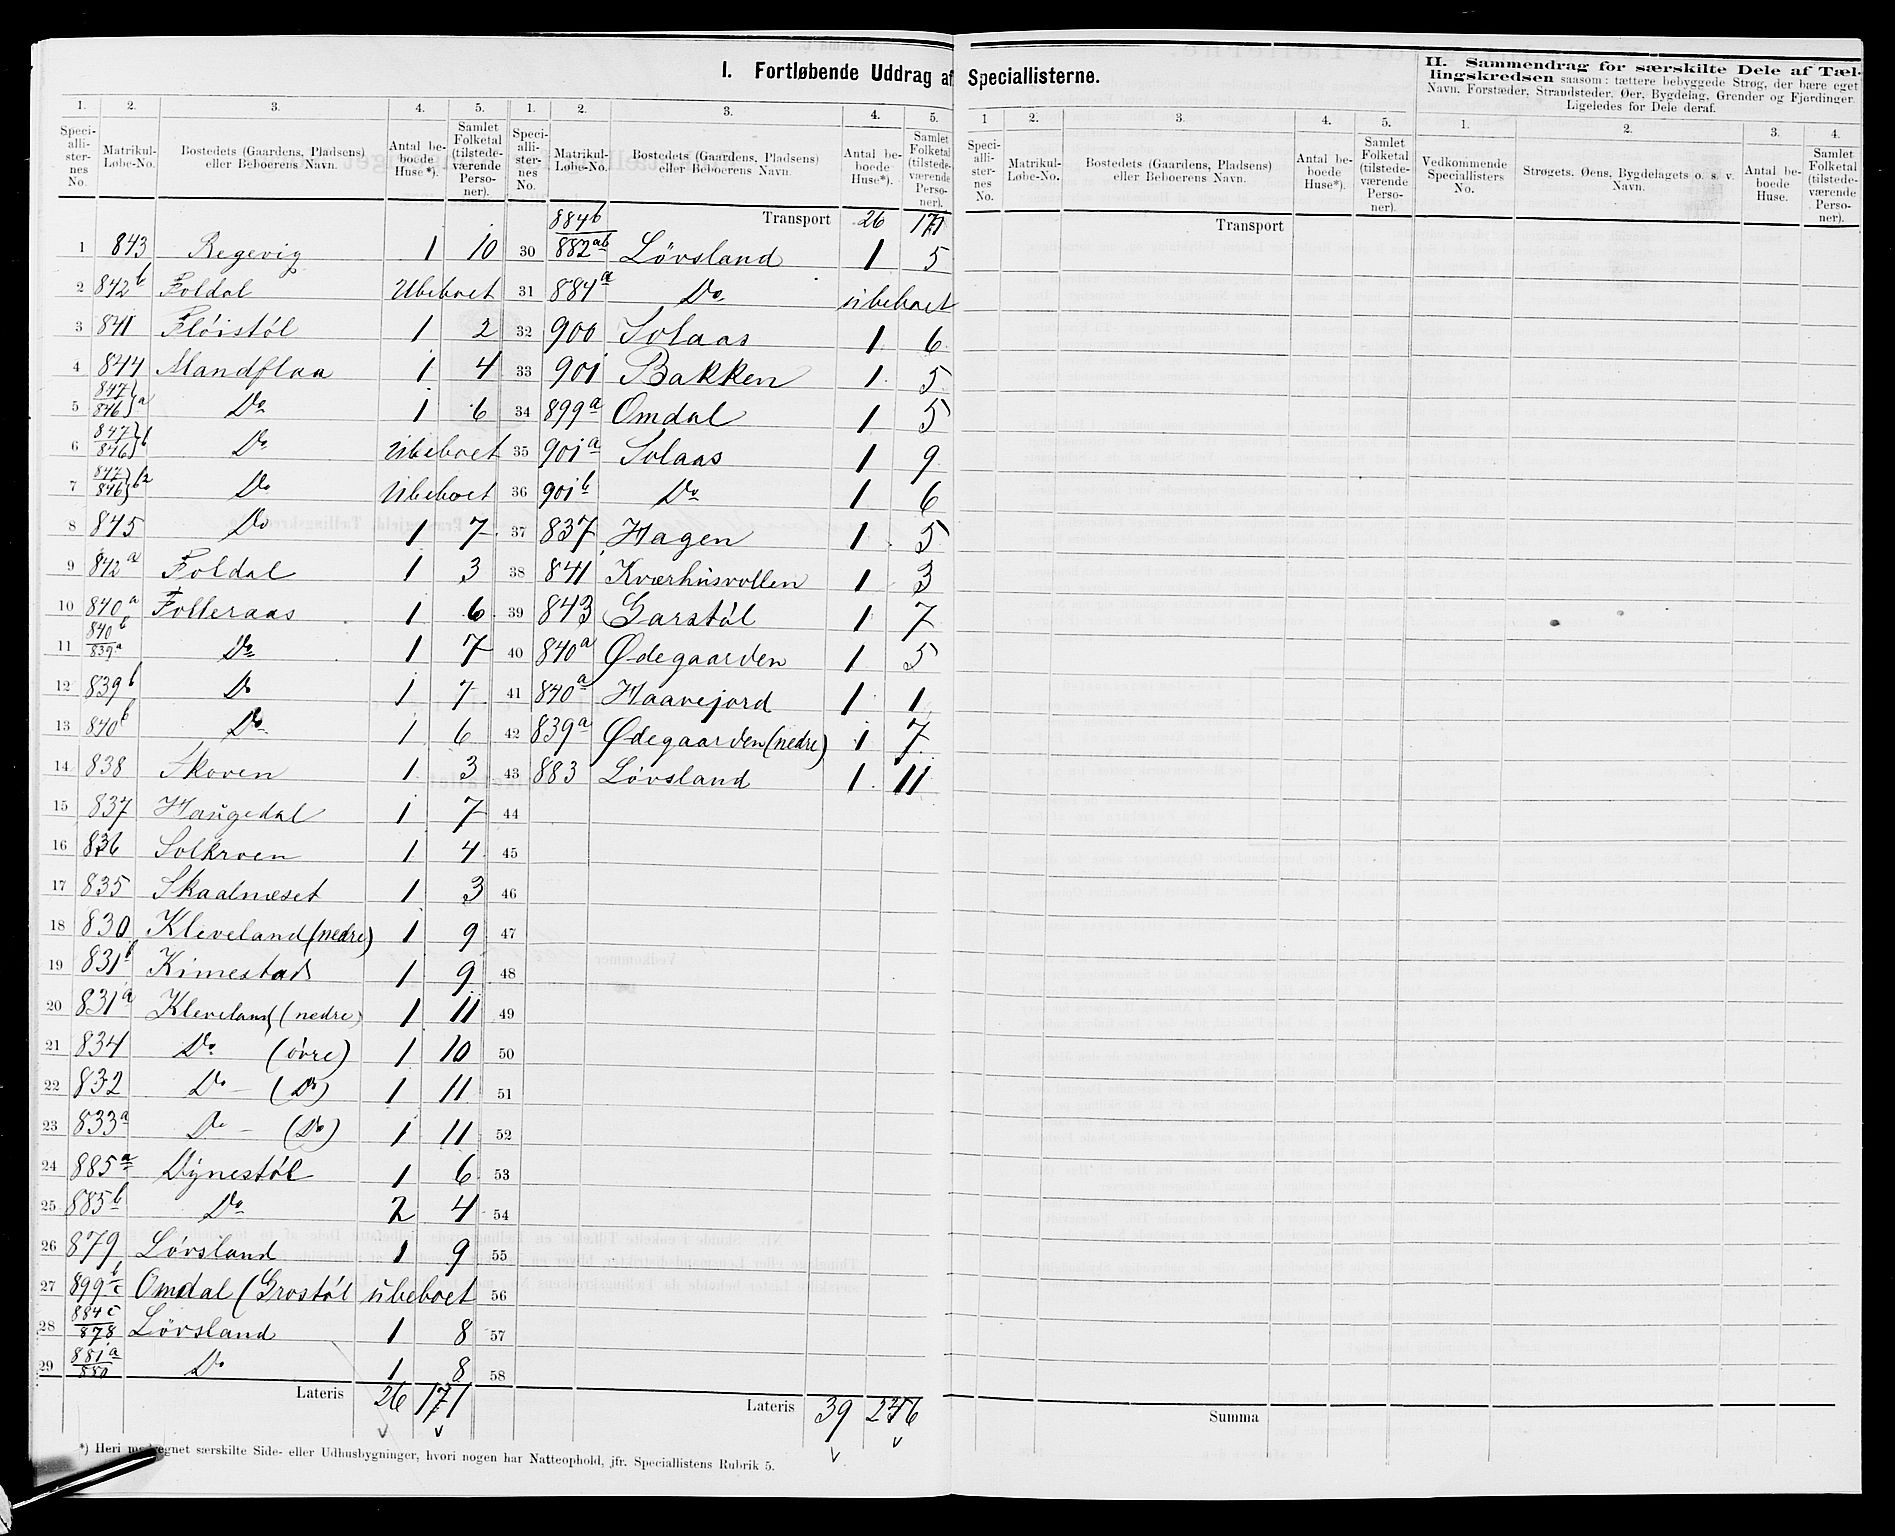 I. Fortløbende Uddrag af Speciallisterne.
II. Sammendrag for særskilte Dele af Tæl-
lingskredsen saasom: tættere bebyggede Strøg, der bære eget
Navn, Forstæder, Strandsteder, Øer, Bygdelag, Grender og Fjordinger.
Ligeledes for Dele deraf.
1. 2. 3. 4. 5.
Speci-alli-ster-nes No. Matrikul-Løbe-No. Bostedets (Gaardens, Pladsens) eller Beboerens Navn. Antal be-boede Huse*). Samlet Folketal (tilstede-værende Perso-ner).
1 843 Regevig 1 10
2 842b Foldal Ubeboet
3 841 Fløistøl 1 2
4 844 Mandflaa 1 4
5 847/846 a Do 1 6
6 847/846 b Do Ubeboet
7 847/846 b2 Do Ubeboet
8 845 Do 1 7
9 842a Foldal 1 3
10 840a Folleraas 1 6
11 840b/839a Do 1 7
12 839b Do 1 7
13 840b Do 1 6
14 838 Skoven 1 3
15 837 Haugedal 1 7
16 836 Solkroen 1 4
17 835 Skaalneset 1 3
18 830 Kleveland (nedre) 1 9
19 831b Kimestad 1 9
20 831a Kleveland (nedre) 1 11
21 834 Do (övre) 1 10
22 832 Do - (Do) 1 11
23 833a Do - (Do) 1 11
24 885a Dynestøl 1 6
25 885b Do 2 4
26 879 Løvsland 1 9
27 899b c Omdal (Grostøl ubeboet
28 884c/878 Løvsland 1 8
29 881a/880 Do 1 8
Lateris 26 171
1. 2. 3. 4. 5.
Speci-alli-ster-nes No. Matrikul-Løbe-No. Bostedets (Gaardens, Pladsens) eller Beboerens Navn. Antal be-boede Huse*). Samlet Folketal (tilstede-værende Perso-ner).
Transport 26 171
30 884b/882ab Løvsland 1 5
31 884a Do ubeboet
32 900 Solaas 1 6
33 901 Bakken 1 5
34 899a Omdal 1 5
35 901a Solaas 1 9
36 901b Do 1 6
37 837 Hagen 1 5
38 841 Kværhusvollen 1 3
39 843 Garstøl 1 7
40 840a Ødegaarden 1 5
41 840a Haavejord 1 1
42 839a Ødegaarden (nedre) 1 7
43 883 Løvsland 1 11
44
45
46
47
48
49
50
51
52
53
54
55
56
57
58
Lateris 39 246
*) Heri medregnet særskilte Side- eller Udhusbygninger, hvori nogen har Natteophold, jfr. Speciallistens Rubrik 5.
1 2. 3. 4. 5.
Speci-alli-ster-nes No. Matrikul-Løbe-No. Bostedets (Gaardens, Pladsens) eller Beboerens Navn. Antal be-boede Huse*). Samlet Folketal (tilstede-værende Perso-ner).
Transport
Summa
1. 2. 3. 4.
Vedkommende Speciallisters No. Strøgets, Øens, Bygdelagets o. s. v. Navn. Antal be-boede Huse. Samlet Folketal (tilstede-værende Perso-ner).